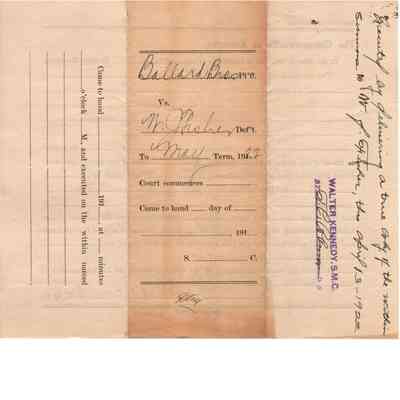 Ballard Bros Pt'ff.
Vs.
W. J. Fisher Def't.
To May Term, 1922
Court commences
Came to hand day of
191
S. C.
Came to hand 191 at minutes
o'clock M., and executed on the within named
Executed by delivering a true copy of the within
Summons to W. J. Fisher, this April 13 - 1922
WALTER KENNEDY, S.M.C.
BY